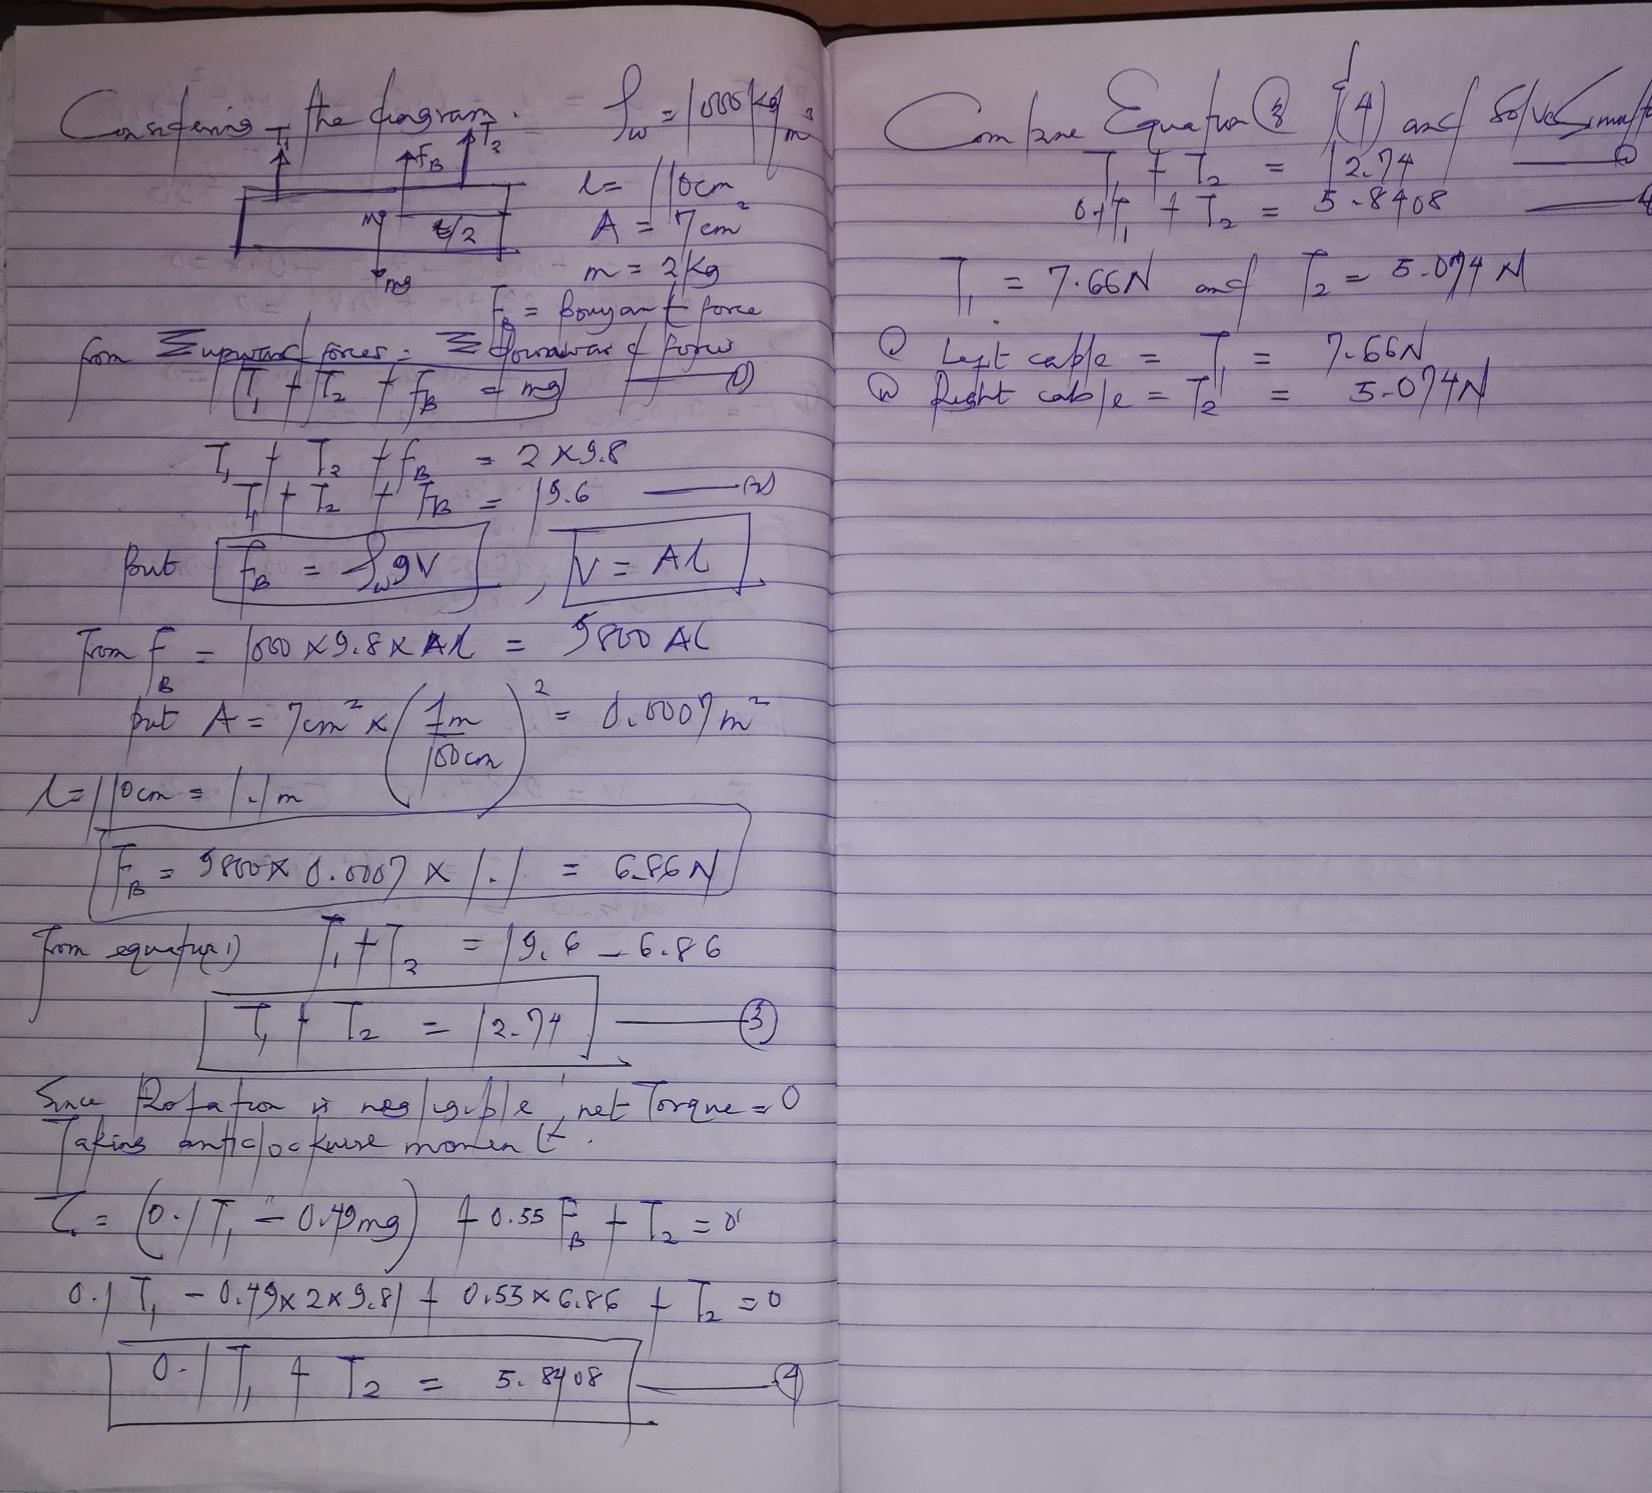 Considering the diagram. ρw = 1000kg/m³
T1 FB T2
l = 110cm
mg l/2 A = 7cm²
mg m = 2kg
FB = Bouyant force
from Σ upward forces = Σ downward forces
T1 + T2 + FB = mg — (1)
T1 + T2 + FB = 2 × 9.8
T1 + T2 + FB = 19.6 — (2)
but FB = ρw g V , V = Al
From FB = 1000 × 9.8 × Al = 9800 Al
but A = 7cm² × (1m/100cm)² = 0.0007m²
l = 110cm = 1.1m
FB = 9800 × 0.0007 × 1.1 = 6.86N
from equation 1) T1 + T2 = 19.6 - 6.86
T1 + T2 = 12.74 — (3)
Since Rotation is negligible, net Torque = 0
Taking anticlockwise moment.
τ = (0.1T1 - 0.49mg) + 0.55FB + T2 = 0
0.1T1 - 0.49×2×9.81 + 0.55×6.86 + T2 = 0
0.1T1 + T2 = 5.8408 — (4)
Combine Equation (3) & (4) and Solve
T1 + T2 = 12.74
0.1T1 + T2 = 5.8408
T1 = 7.66N and T2 = 5.074N
Left cable = T1 = 7.66N
Right cable = T2 = 5.074N